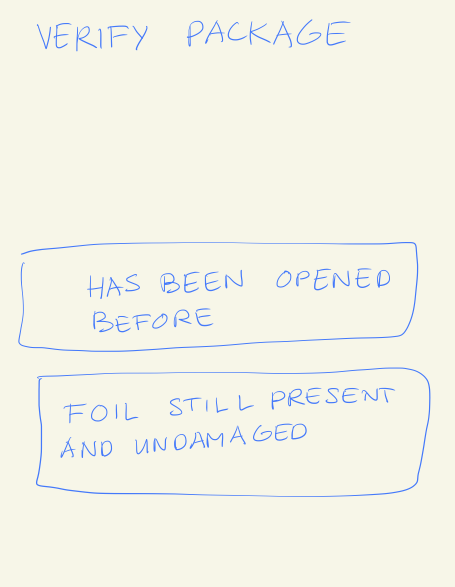 VERIFY PACKAGE
HAS BEEN OPENED
BEFORE
FOIL STILL PRESENT
AND UNDAMAGED